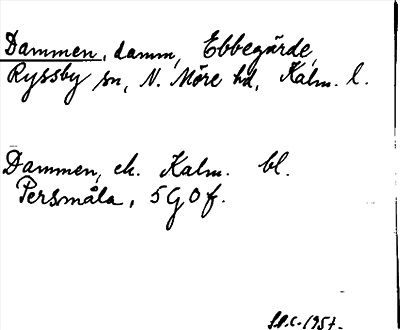 Dammen, damm, Ebbegärde,
Ryssby sn, N. Möre hd, Kalm. l.
Dammen, ek. Kalm. bl.
Persmåla, 5G0f.
1957.